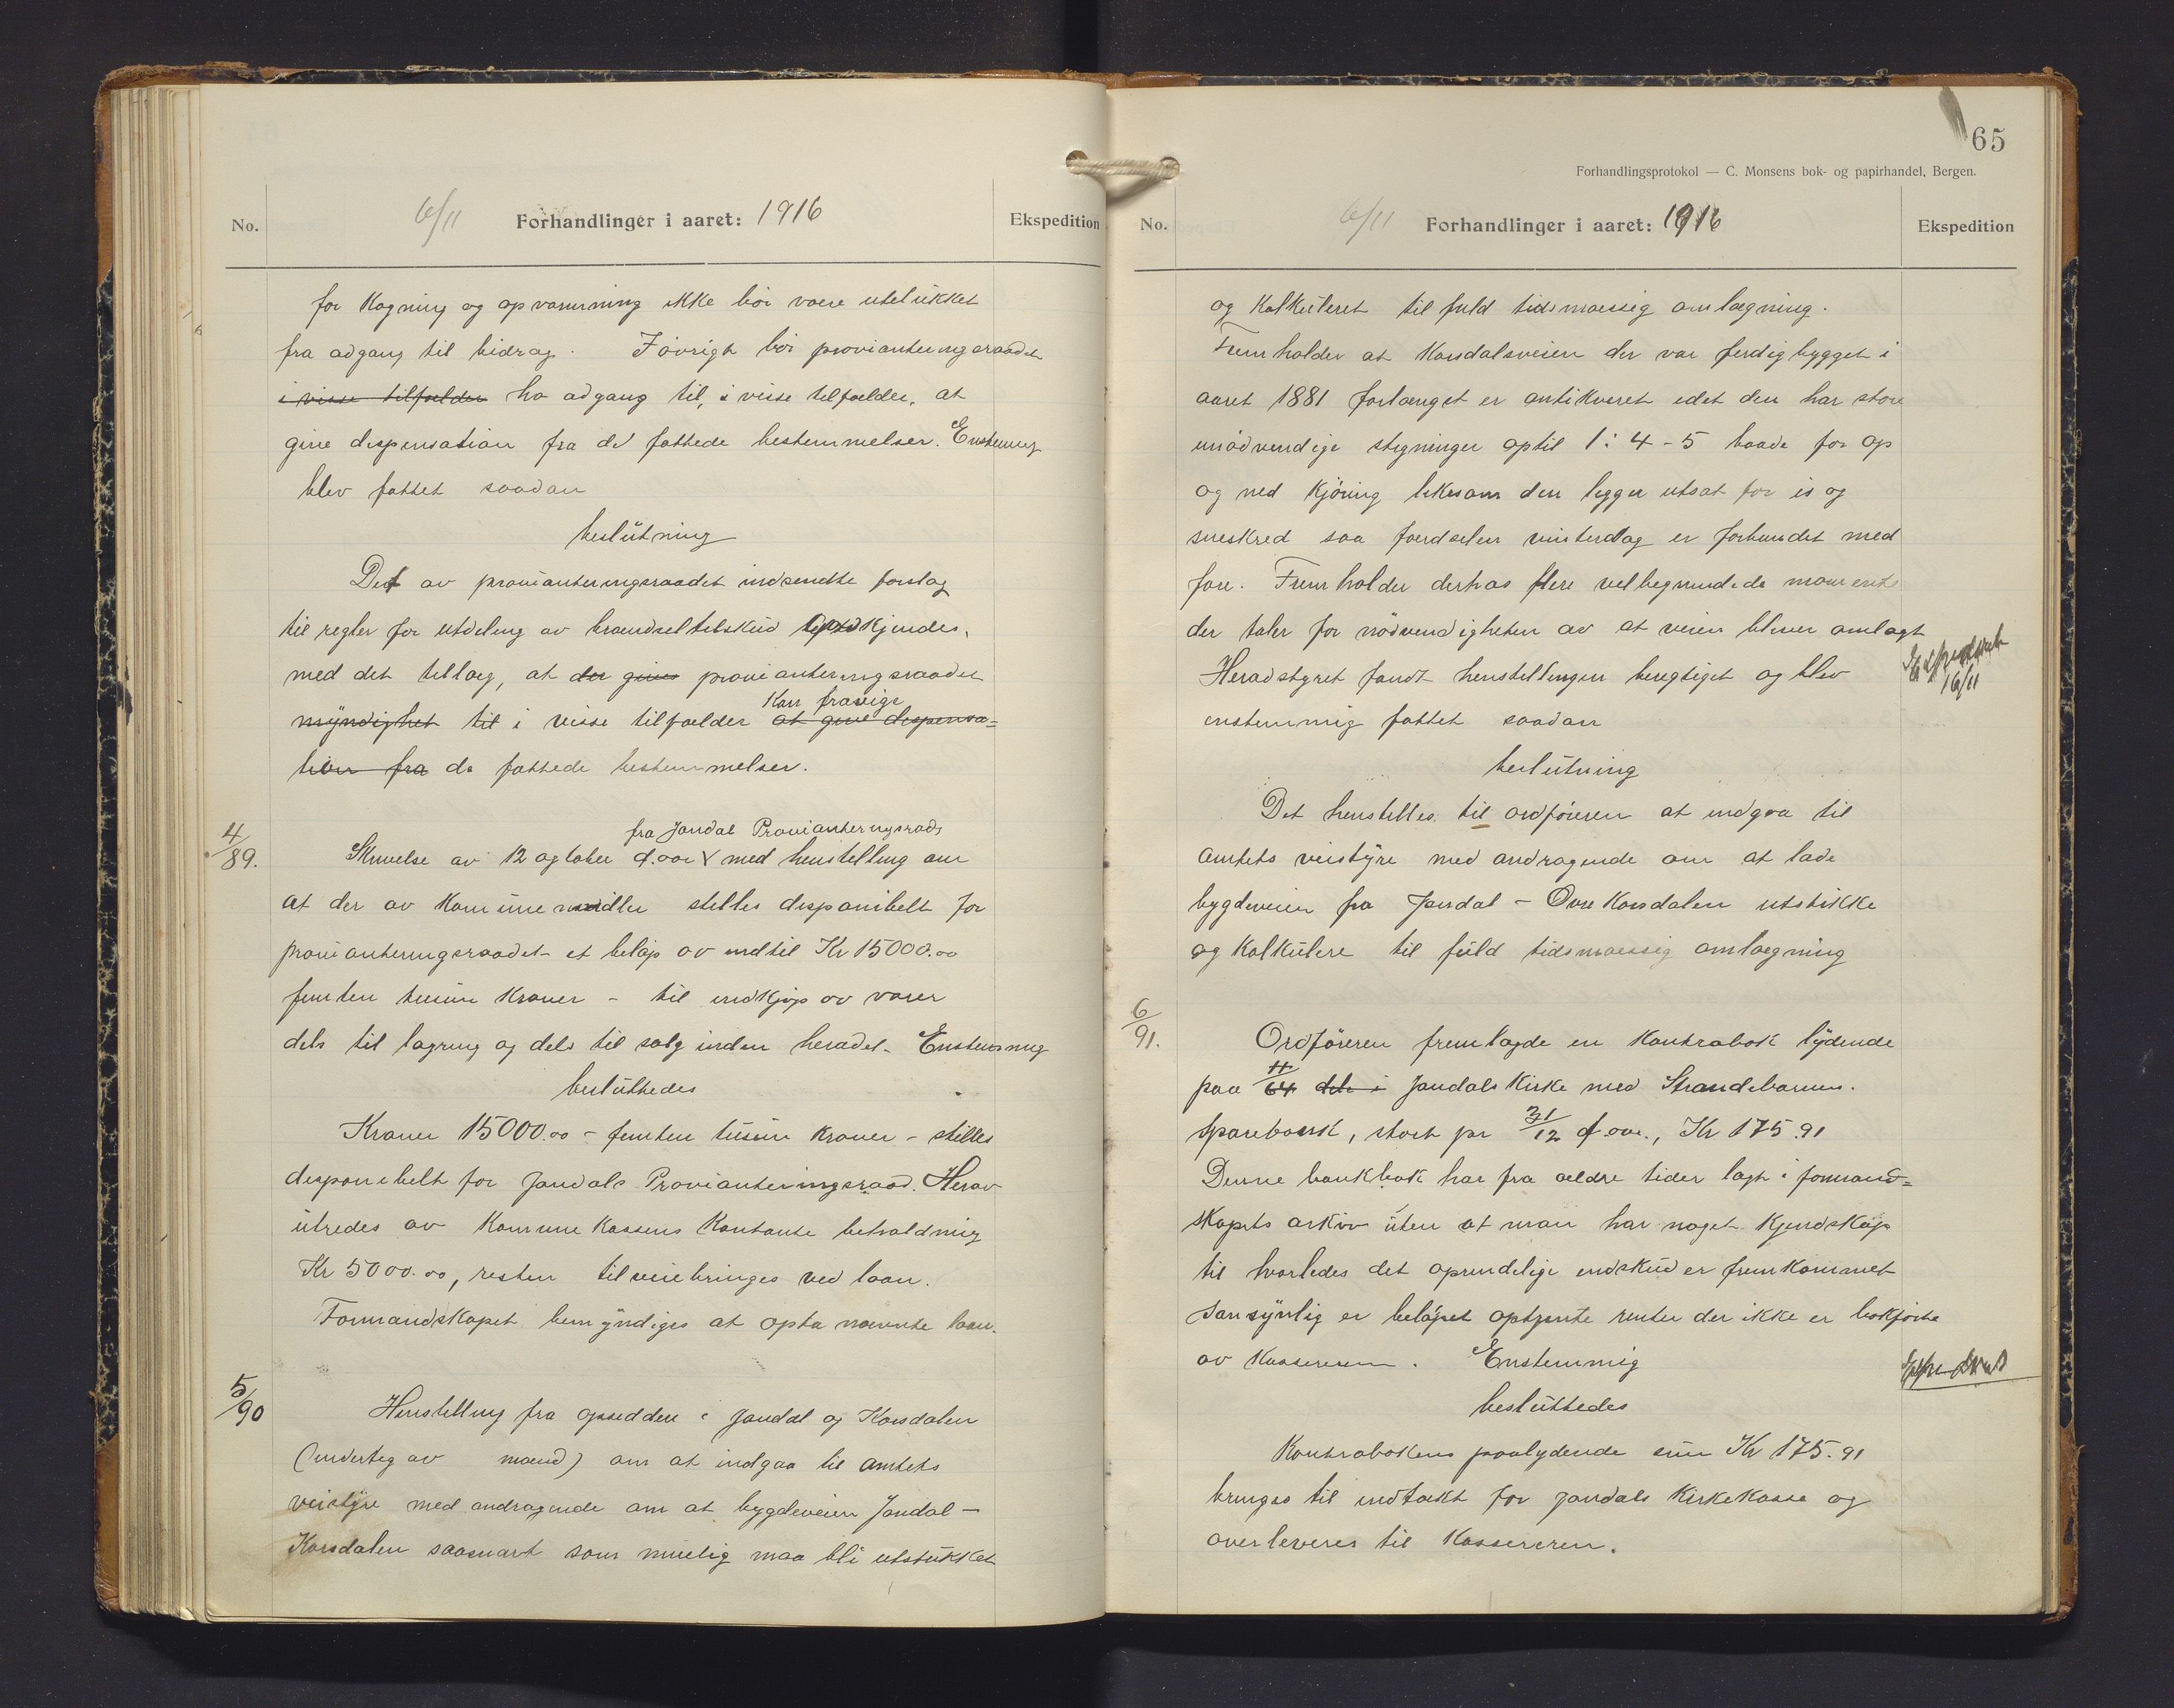 No.
6/11 Forhandlinger i aaret: 1916
Ekspedition
for kogning og opvarmning ikke bör være utelukket
fra adgang til bidrag. Iövrigt bör provianteringsraadet
i visse tilfælder ha adgang til, i visse tilfælder, at
give dispensation fra de fattede bestemmelser. Enstemmig
blev fattet saadan
beslutning
Det av provianteringsraadet indsendte forslag
til regler for utdeling av brændseltilskud godkjendes,
med det tillæg, at der gives provianteringsraadet
kan fravige
myndighet til i visse tilfælder at give dispensa=
tion fra de fattede bestemmelser.
4/89.
fra Jondal Provianteringsraad
Skrivelse av 12 oktober d.aar med henstilling om
at der av kommunemidler stilles disponibelt for
provianteringsraadet et beløp av indtil Kr 15000.00
femten tusin kroner - til indkjøp av varer
dels til lagring og dels til salg inden heradet. Enstemmig
besluttedes
Kroner 15000.00 - femten tusin kroner - stilles
disponibelt for Jondals Provianteringsraad. Herav
utredes av kommunekassens kontante behaldning
Kr 5000.00, resten tilveiebringes ved laan.
Formandskapet bemyndiges at opta nævnte laan.
5/90
Henstilling fra opsiddere i Jondal og Korsdalen
(underteg av mænd) om at indgaa til amtets
veistyre med andragende om at bygdeveien Jondal -
Korsdalen saasnart som muelig maa bli utstukket
65
Forhandlingsprotokol — C. Monsens bok- og papirhandel, Bergen.
No.
6/11 Forhandlinger i aaret: 1916
Ekspedition
og kalkuleret til fuld tidsmæssig omlægning.
Fremholder at Korsdalsveien der var ferdigbygget i
aaret 1881 forlængst er antikveret idet den har store
unödvendige stigninger optil 1:4-5 baade for op
og ned kjöring likesom den ligger utsat for is og
sneskred saa færdselen vinterdag er forbundet med
fare. Fremholder derhos flere velbegrundede momenter
der taler for nödvendigheten av at veien bliver omlagt
Heradstyret fandt henstillingen beregtiget og blev
enstemmig fattet saadan
Ekspedert
16/11
beslutning
Det henstilles til ordföreren at indgaa til
amtets veistyre med andragende om at lade
bygdeveien fra Jondal - Övre Korsdalen utstikke
og kalkulere til fuld tidsmæssig omlægning
6/91.
Ordföreren fremlagde en kontrabok lydende
paa 11/64 del i Jondals kirke med Strandebarms
Sparebank, stort pr 31/12 f. aar., Kr 175.91
Denne bankbok har fra ældre tider lagt i formand=
skapets arkiv uten at man har noget kjendskap
til hvorledes det oprindelige indskud er fremkommet
Sansynlig er beløpet optjente renter der ikke er bokførte
av kassereren. Enstemmig
Ekspedert
besluttedes
Kontrabokens paalydende sum Kr 175.91
bringes til indtækt for Jondals Kirkekasse og
overleveres til kassereren.